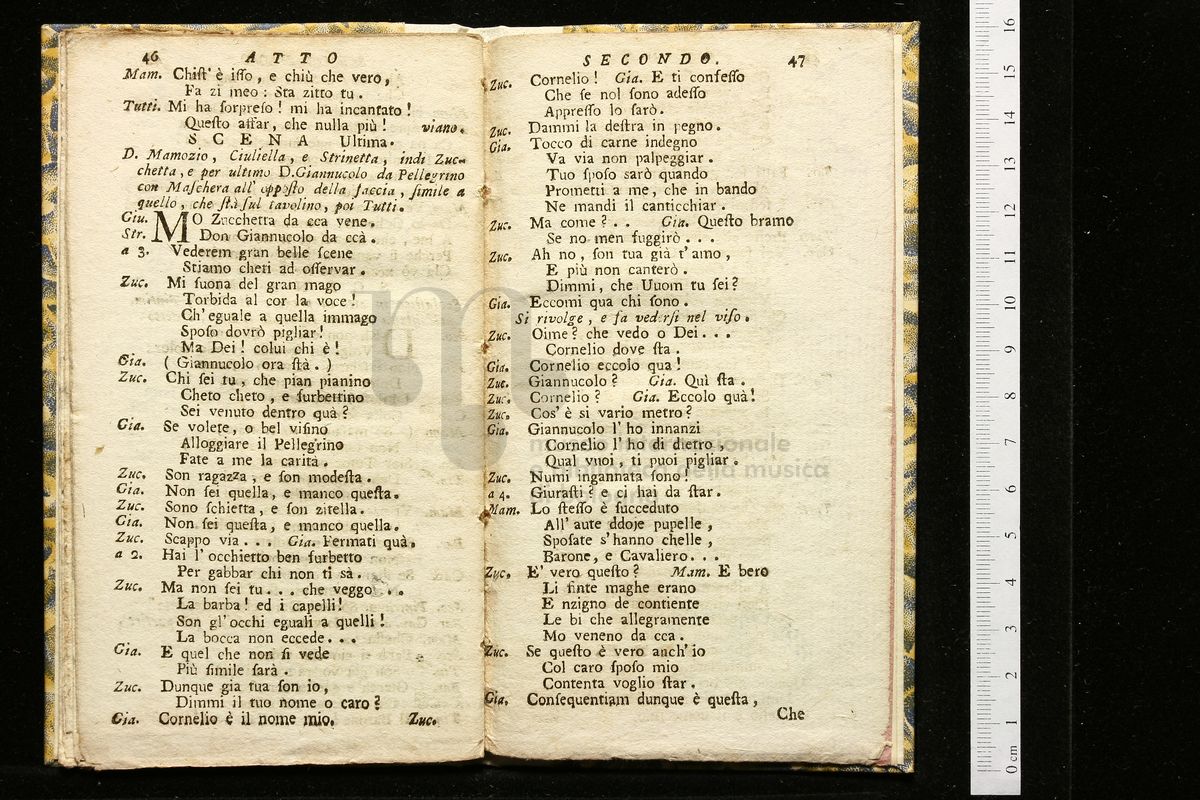 46 ATTO
Mam. Chiſt' è iſſo, e chiù che vero,
Fa zi meo: Sta zitto tu.
Tutti. Mi ha ſorpreſo! mi ha incantato!
Queſto affar, che nulla più! viano.
SCENA Ultima.
D. Mamozio, Ciuliella, e Strinetta, indi Zuc-
chetta, e per ultimo D.Giannucolo da Pellegrino
con Maſchera all' oppoſto della faccia, ſimile a
quello, che ſtà ſul tavolino, poi Tutti.
Giu. MO Zucchetta da cca vene.
Str. Don Giannucolo da ccà.
a 3. Vederem gran belle ſcene
Stiamo cheti ad oſſervar.
Zuc. Mi ſuona del gran mago
Torbida al cor la voce!
Ch' eguale a quella immago
Spoſo dovrò pigliar!
Ma Dei! colui chi è!
Gia. (Giannucolo ora ſtà.)
Zuc. Chi ſei tu, che pian pianino
Cheto cheto, e furbettino
Sei venuto dentro quà?
Gia. Se volete, o bel viſino
Alloggiare il Pellegrino
Fate a me la carità.
Zuc. Son ragazza, e ſon modeſta.
Gia. Non ſei quella, e manco queſta.
Zuc. Sono ſchietta, e ſon zitella.
Gia. Non ſei queſta, e manco quella.
Zuc. Scappo via... Gia. Fermati quà.
a 2. Hai l' occhietto ben furbetto
Per gabbar chi non ti sà.
Zuc. Ma non ſei tu... che veggo...
La barba! ed i capelli!
Son gl' occhi eguali a quelli!
La bocca non eccede...
Gia. E quel che non ſi vede
Più ſimile ſarà.
Zuc. Dunque già tua ſon io,
Dimmi il tuo nome o caro?
Gia. Cornelio è il nome mio.
Zuc.
SECONDO. 47
Zuc. Cornelio! Gia. E ti confeſſo
Che ſe nol ſono adeſſo
Appreſſo lo ſarò.
Zuc. Dammi la deſtra in pegno.
Gia. Tocco di carne indegno
Va via non palpeggiar.
Tuo ſpoſo ſarò quando
Prometti a me, che in bando
Ne mandi il canticchiar.
Zuc. Ma come?.. Gia. Queſto bramo
Se no men fuggirò...
Zuc. Ah no, ſon tua già t' amo,
E più non canterò.
Dimmi, che Uuom tu ſei?
Gia. Eccomi qua chi ſono.
Si rivolge, e fa vederſi nel viſo.
Zuc. Oime? che vedo o Dei...
Cornelio dove ſta.
Gia. Cornelio eccolo qua!
Zuc. Giannucolo? Gia. Quì ſta.
Zuc. Cornelio? Gia. Eccolo quà!
Zuc. Cos' è sì vario metro?
Gia. Giannucolo l' ho innanzi
Cornelio l' ho di dietro,
Qual vuoi, ti puoi pigliar.
Zuc. Numi ingannata ſono!
a 4. Giuraſti? e ci hai da ſtar.
Mam. Lo ſteſſo è ſucceduto
All' aute ddoje pupelle,
Spoſate s' hanno chelle,
Barone, e Cavaliero...
Zuc. E' vero queſto? Mam. E bero
Li finte maghe erano
E nzigno de contiente
Le bi che allegramente
Mo veneno da cca.
Zuc. Se queſto è vero anch' io
Col caro ſpoſo mio
Contenta voglio ſtar.
Gia. Conſequentiam dunque è queſta,
Che